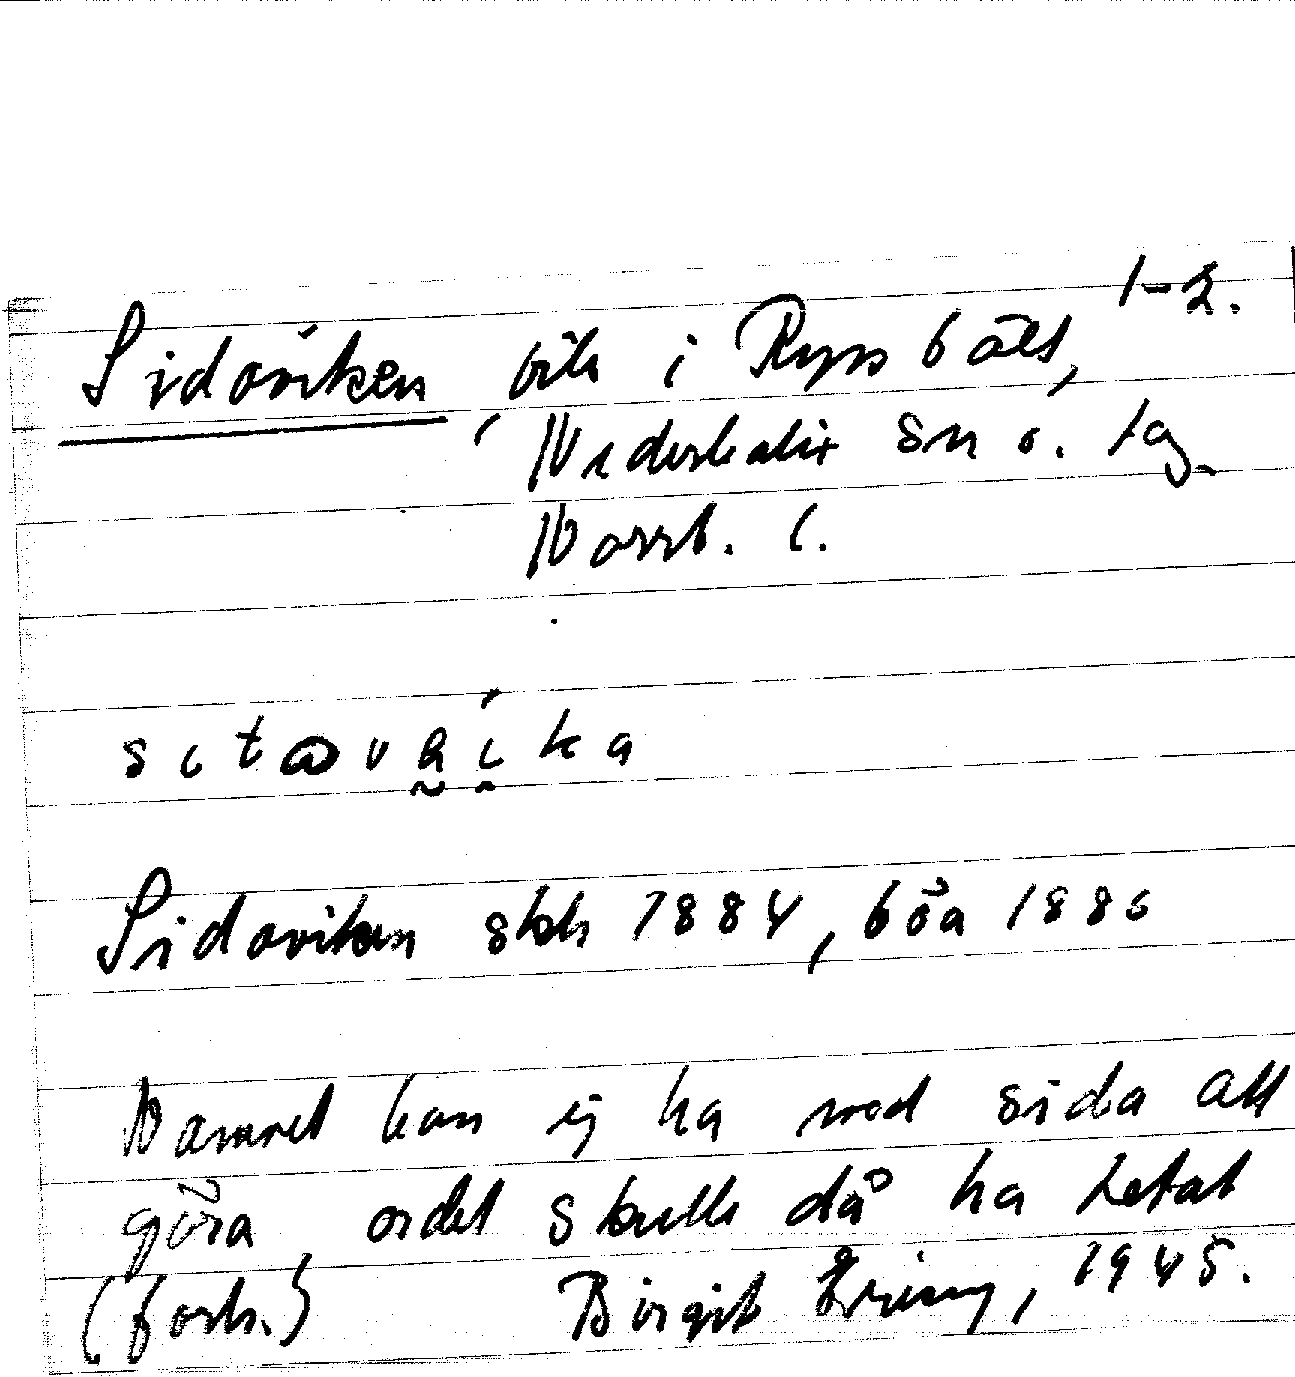 1-2.
Sidoviken, vik i Ryssbält,
Nederkalix sn o. tg.
Norrb. l.
sitavaika
Sidoviken skh 1884, böa 1886
Namnet kan ej ha med sida att
göra, ordet skulle då ha hetat
(forts.) Birgit 1945.